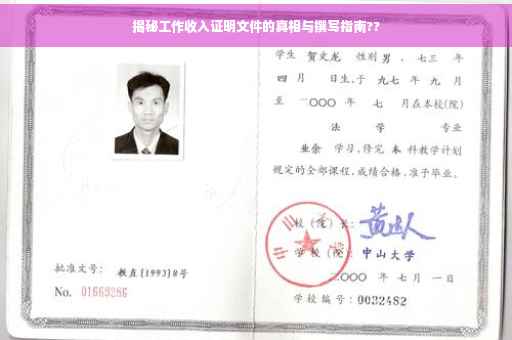 揭秘工作收入证明文件的真相与撰写指南??
学生 贺文龙 性别 男 、七三 年
四 月 日生,于 九七 年 九 月
至 二〇〇〇 年 七 月在本校(院)
法 学 专业
业余 学习,修完 本 科教学计划
规定的全部课程,成绩合格,准予毕业。
校(院)长:
学 校(院): 中山大学
二〇〇〇 年 七 月 一 日
批准文号: 教直[1993]8号
No. 01669286
学校编号: 0032482